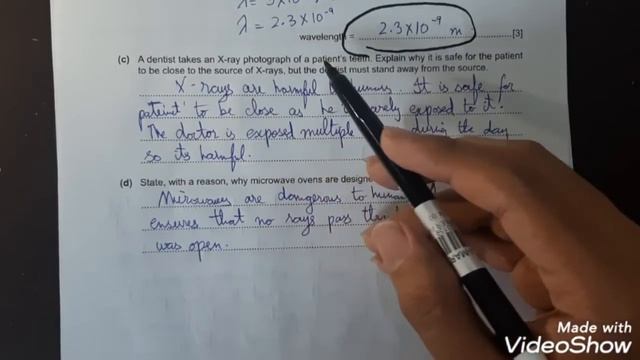 λ = 2.3×10⁻⁹
wavelength = 2.3×10⁻⁹ m [3]
(c) A dentist takes an X-ray photograph of a patient's teeth. Explain why it is safe for the patient
to be close to the source of X-rays, but the dentist must stand away from the source.
X-rays are harmful humans. It is safe for
to be close as he rarely exposed to it.
The doctor is exposed multiple during the day
so its harmful.
(d) State, with a reason, why microwave ovens are
Microwaves are dangerous to
ensures that no rays pass
was open.
Made with
VideoShow